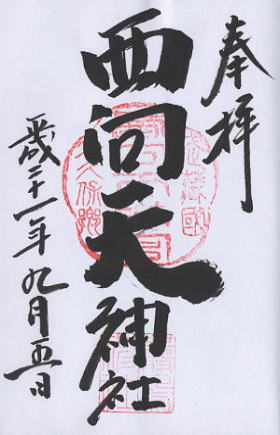 奉拝
西向天神社
平成二十一年九月五日